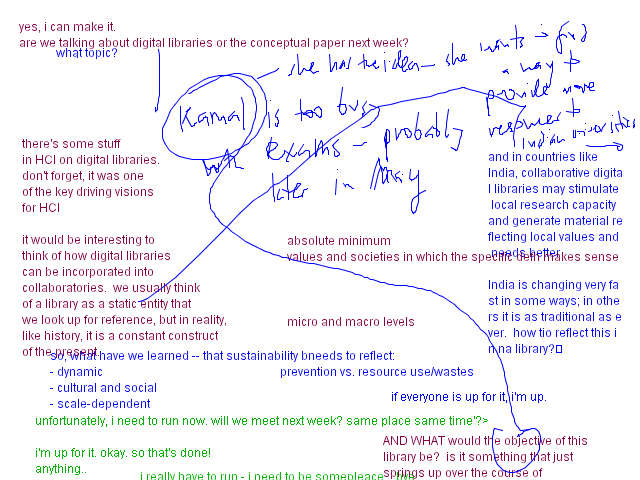 yes, i can make it.
are we talking about digital libraries or the conceptual paper next week?
what topic?
she has the idea - she wants to find
a way to
provide more
resources to
Indian universities
Kamal is too busy
with exams - probably
later in May
there's some stuff
in HCI on digital libraries.
don't forget, it was one
of the key driving visions
for HCI
it would be interesting to
think of how digital libraries
can be incorporated into
collaboratories. we usually think
of a library as a static entity that
we look up for reference, but in reality,
like history, it is a constant construct
of the present.
and in countries like
India, collaborative digita
l libraries may stimulate
local research capacity
and generate material re
flecting local values and
needs better
absolute minimum
values and societies in which the specific defn makes sense
India is changing very fa
st in some ways; in othe
rs it is as traditional as e
ver. how tio reflect this i
n na library?
micro and macro levels
so, what have we learned -- that sustainability bneeds to reflect:
- dynamic
- cultural and social
- scale-dependent
prevention vs. resource use/wastes
if everyone is up for it, i'm up.
unfortunately, i need to run now. will we meet next week? same place same time'?>
i'm up for it. okay. so that's done!
anything..
AND WHAT would the objective of this
library be? is it something that just
springs up over the course of
i really have to run - i need to be someplace